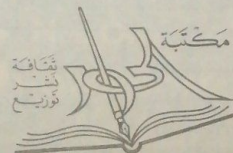 مَكْتَبَة
ثَقَافَة
نَشْر
تَوْزِيع